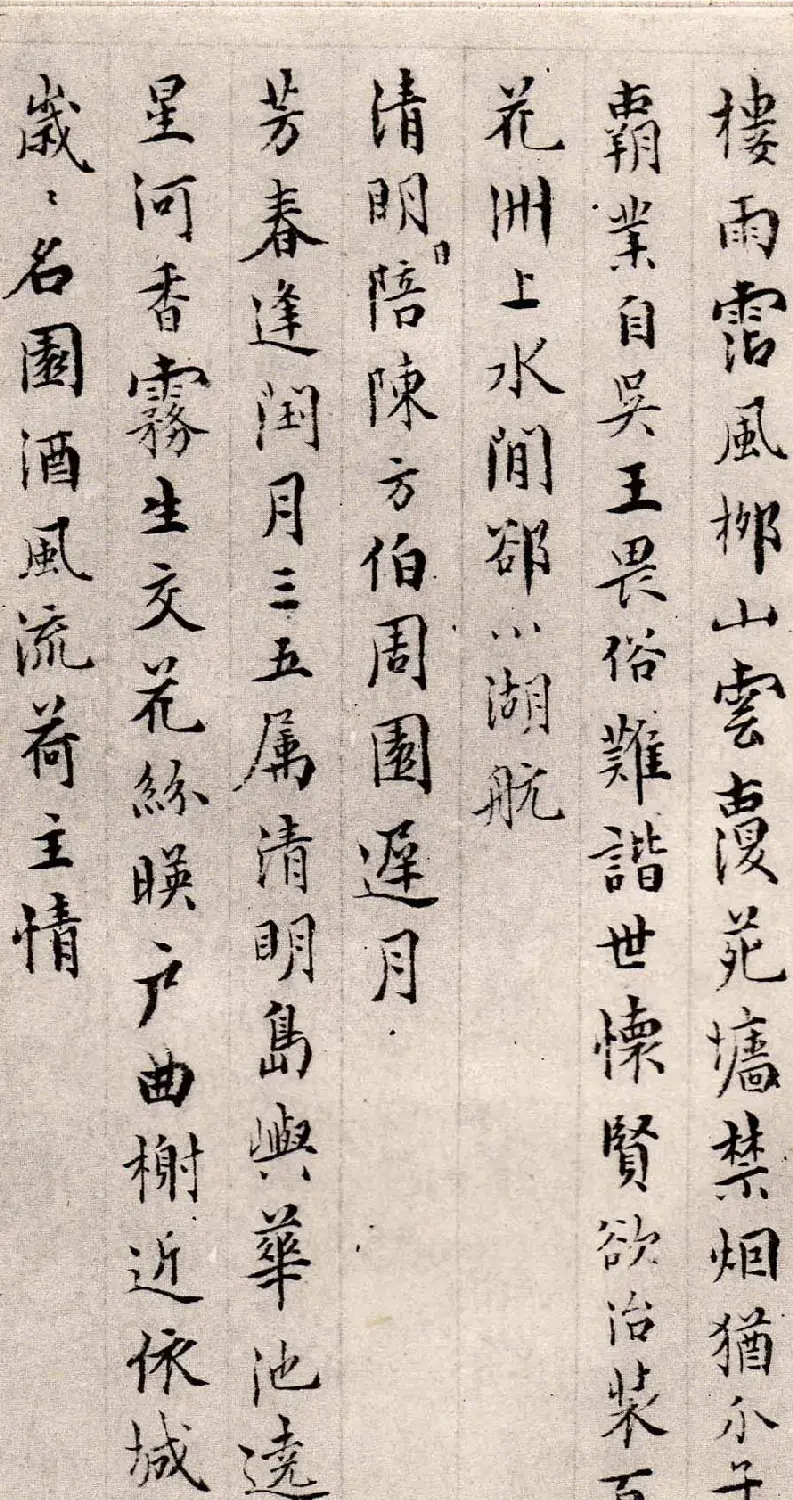 楼雨霑風栁山雲覆苑墻禁烟猶尒子
覇業自吳王畏俗難諧世懷賢欲治裝百
花洲上水閒卻小湖航
清明日陪陳方伯周園遲月
芳春逢閏月三五属清明島嶼華池遶
星河香霧生交花絲暎戶曲榭近依城
嵗〻名園酒風流荷主情